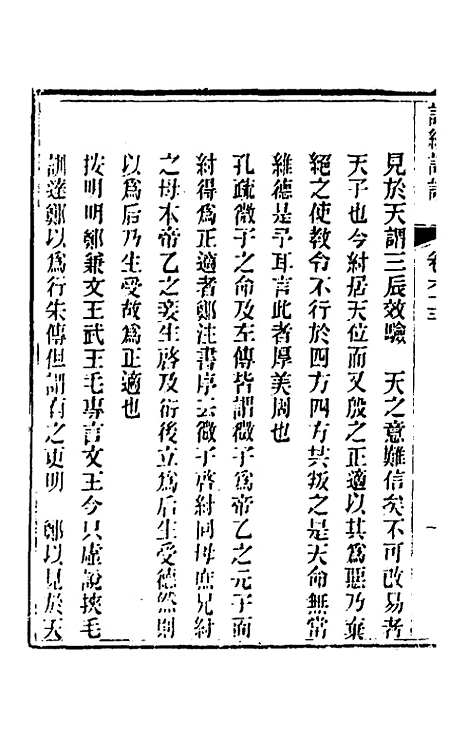 詩經詳說
卷六十三
見於天謂三辰效驗　天之意難信矣不可改易者
天子也今紂居天位而又殷之正適以其爲惡乃棄
絕之使教令不行於四方四方共叛之是天命無常
維德是予耳言此者厚美周也
孔疏微子之命及左傳皆謂微子爲帝乙之元子而
紂得爲正適者鄭注書序云微子啓紂同母庶兄紂
之母本帝乙之妾生啓及衍後立爲后生受德然則
以爲后乃生受故爲正適也
按明明鄭兼文王武王毛專言文王今只虛說挾毛
訓達鄭以爲行朱傳但謂有之更明　鄭以見於天